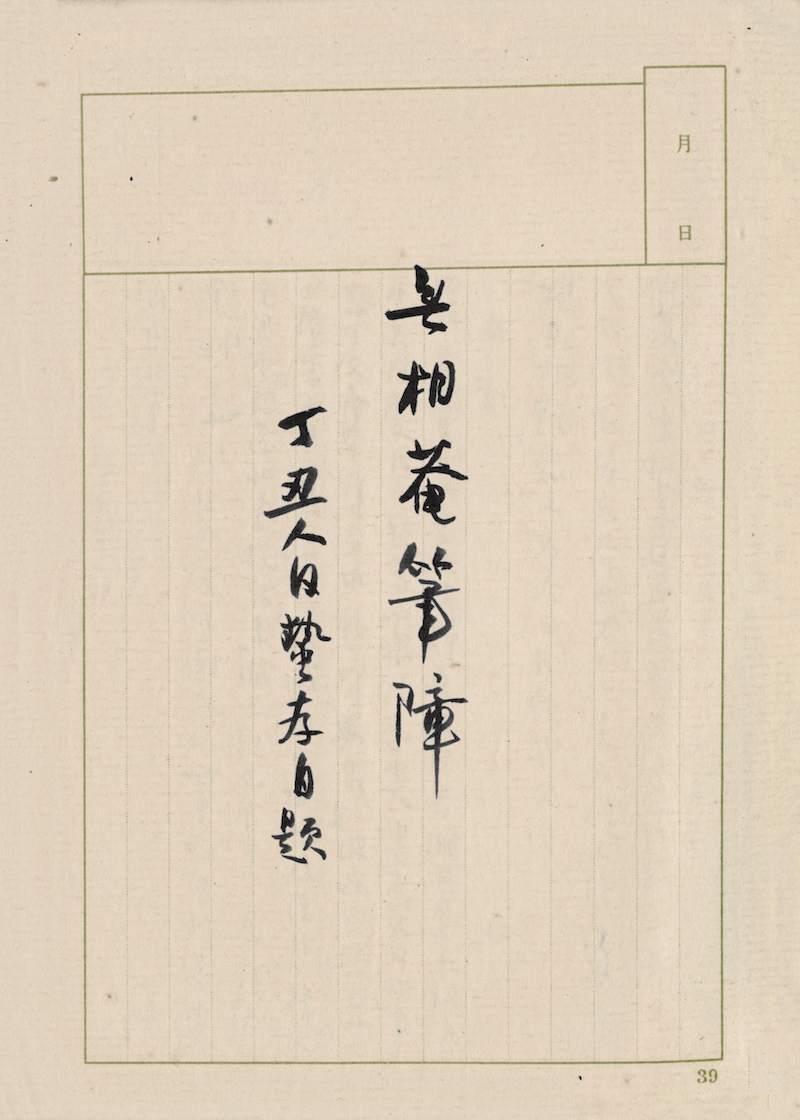 月
日
無相菴筆障
丁丑人日蟄存自題
39